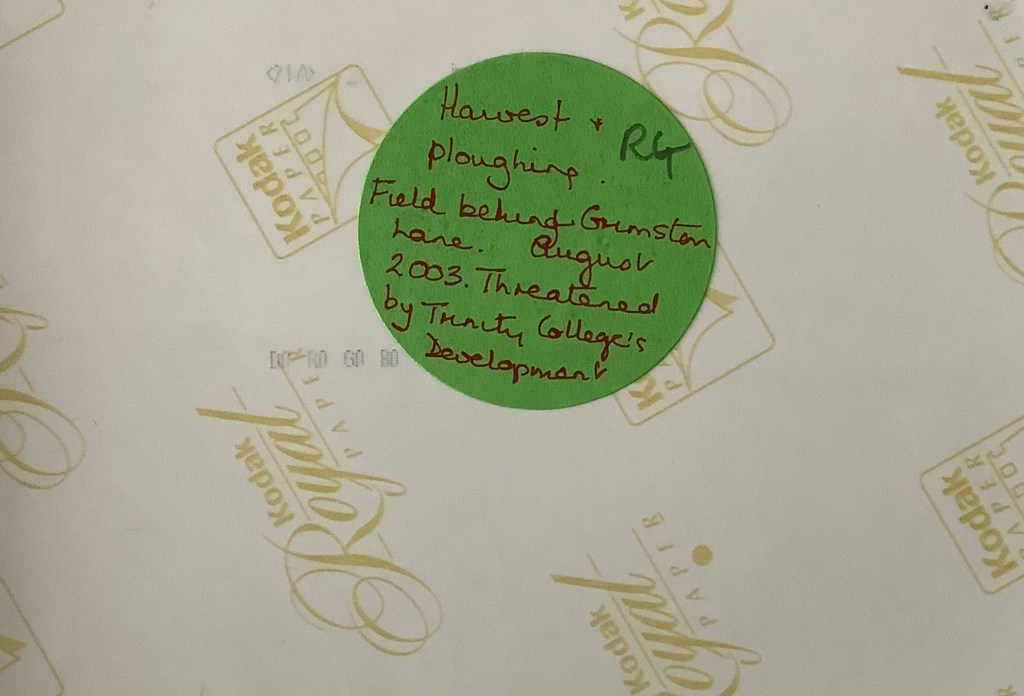 Harvest +
ploughing.
RG
Field behind Grimston
Lane. August
2003. Threatened
by Trinity College's
Development
<21A>
Kodak
PAPER
Kodak
Royal
PAPER
Kodak
Royal
PAPER
Kodak
Royal
PAPER
Kodak
PAPER